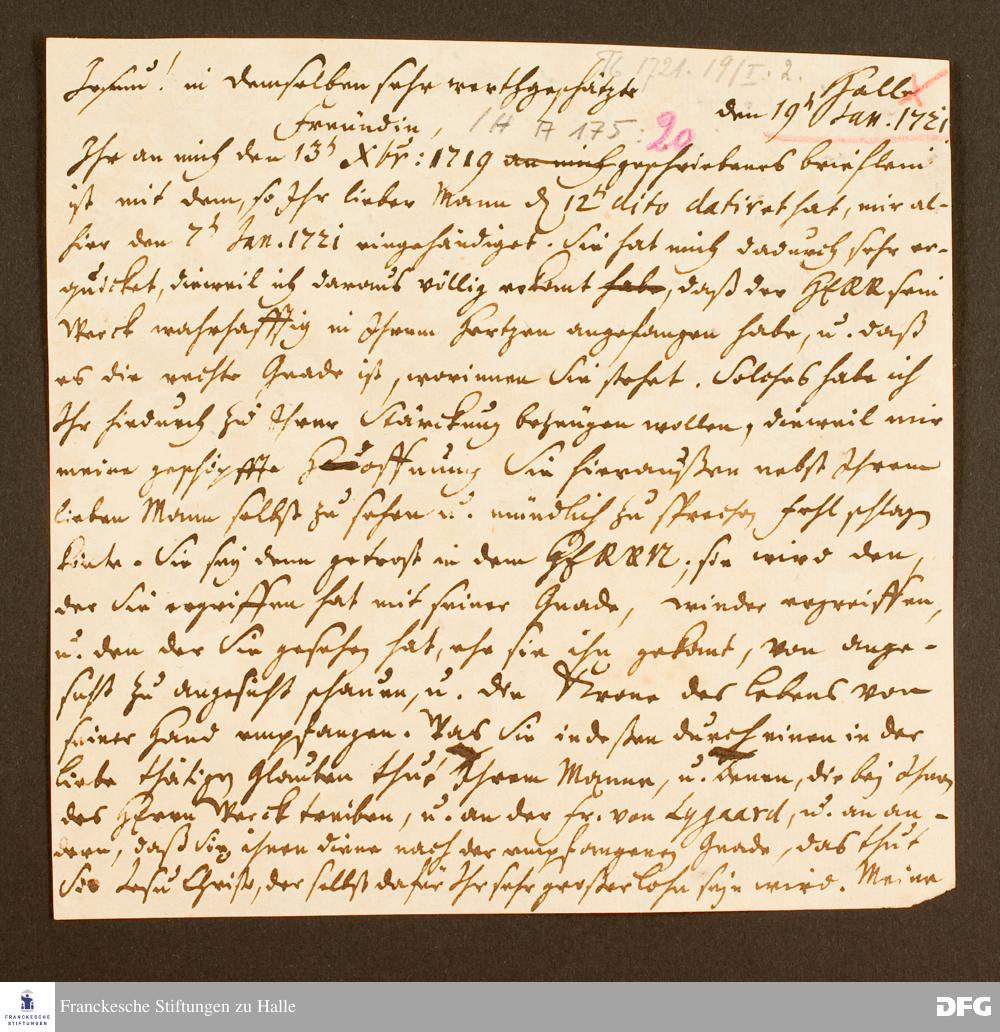 Jesum! in demselben sehr werthgeschätzte
Freündin,
Halle
den 19t Jan. 1721
Tb 1721. 19/I. 2.
1H A 175: 20
Ihr an mich den 13t Xbr: 1719 an mich geschriebenes brieflein
ist mit dem, so Ihr lieber Mann d 12t dito datiret hat, mir al-
hier den 7t Jan. 1721 eingehändiget. Sie hat mich dadurch sehr er-
quicket, dieweil ich daraus völlig erkannt habe, daß der HERR sein
Werck wahrhafftig in Ihrem Hertzen angefangen habe, u. daß
es die rechte Gnade ist, worinnen Sie stehet. Solches habe ich
Ihr hiedurch zu Ihrer Stärckung bezeugen wollen, dieweil mir
meine geschöpffte Hoffnung Sie hieraußen nebst Ihrem
lieben Mann selbst zu sehen u. mündlich zu sprechen fehl schlagen
könte. Sie sey denn getrost in dem HERRN; sie wird den,
der Sie ergriffen hat mit seiner Gnade, wieder ergreiffen,
u. den der Sie gesehen hat, ehe sie ihn gekant, von ange-
sicht zu angesicht schauen, u. die Krone des Lebens von
seiner Hand empfangen. Was Sie indeßen durch einen in der
Liebe thätigen Glauben thut Ihrem Manne, u. denen, die bey Ihnen
des HErrn Werck treiben, u. an der Fr. von Lygaard, u. an an-
dern, daß Sie ihnen diene nach der empfangenen Gnade, das thut
Sie Jesu Christo, der selbst dafür Ihr sehr großer lohn seyn wird. Meine
FRANCKESCHE
STIFTUNGEN
Franckesche Stiftungen zu Halle
DFG